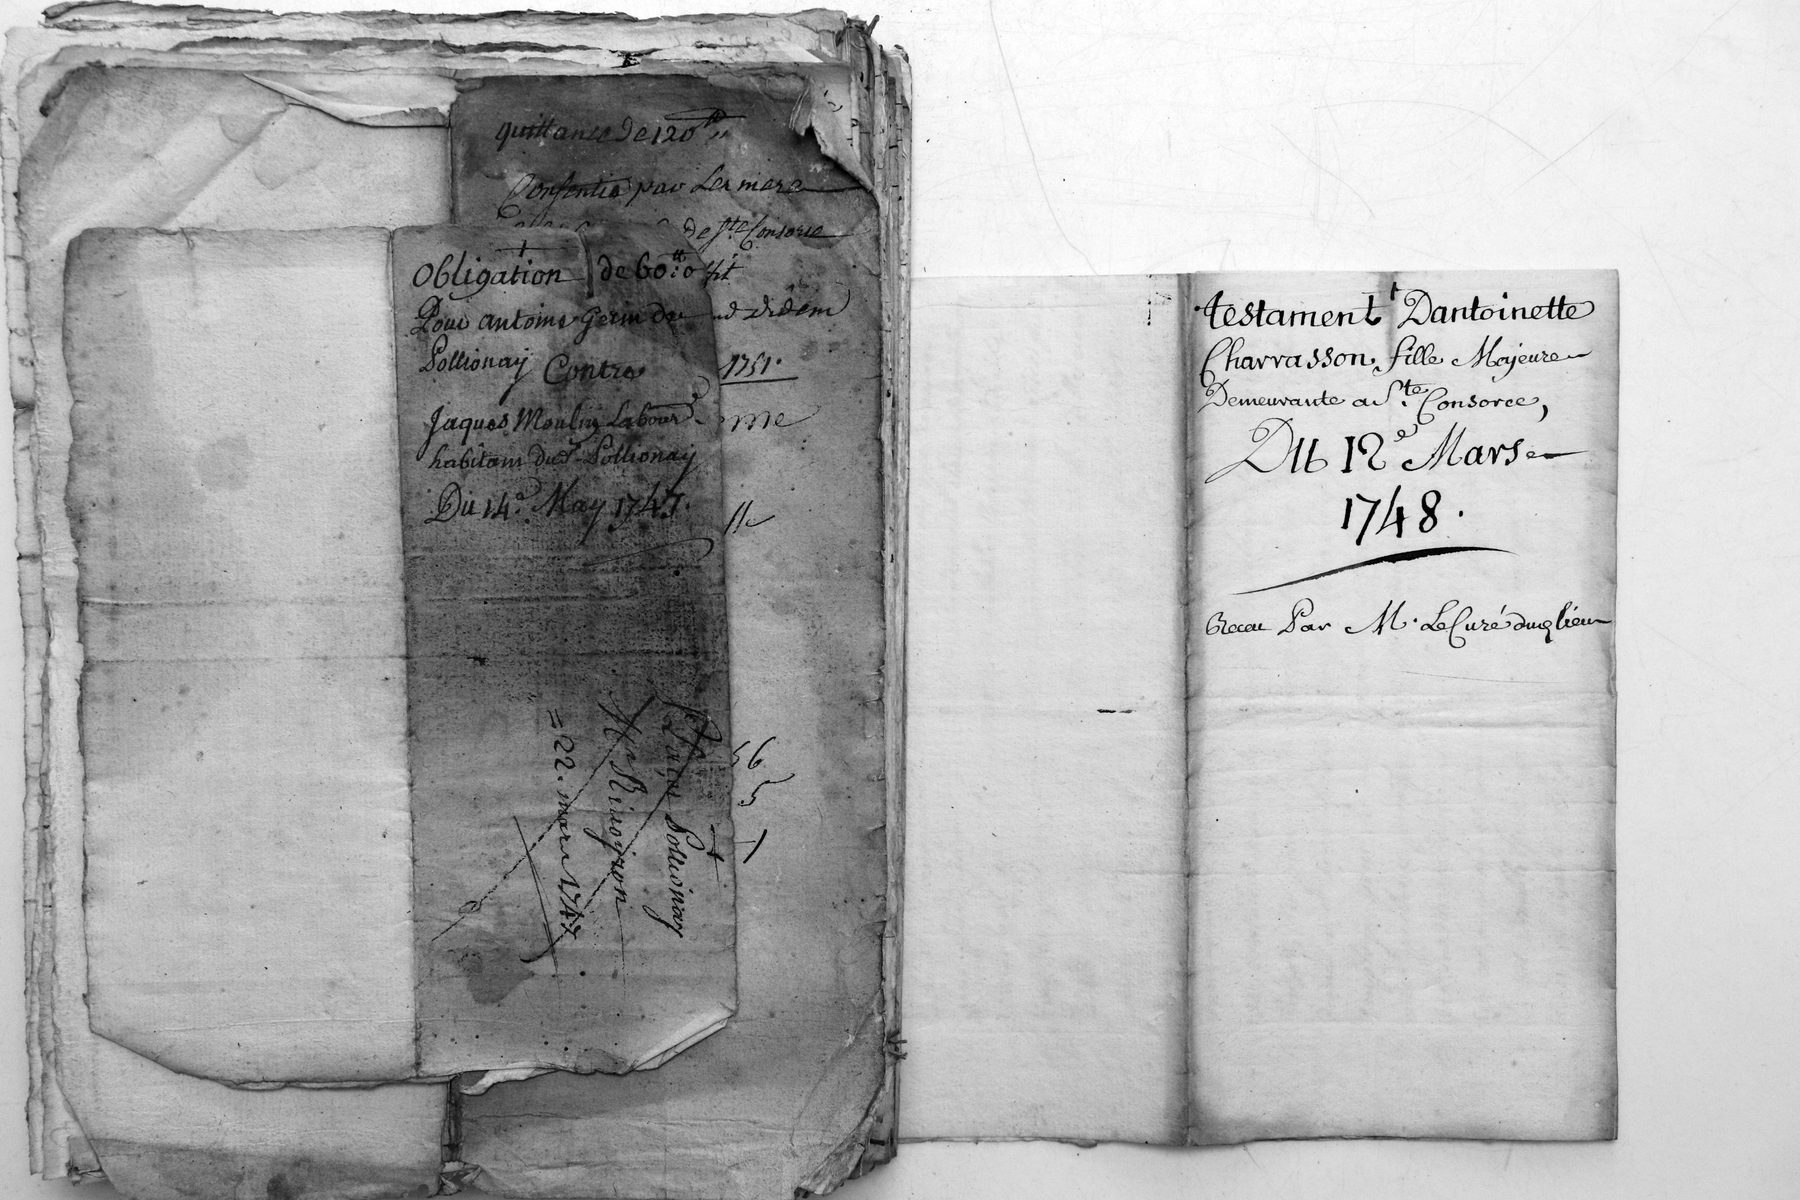 quittance de 120ᵗᵗ
Consentie par Les mere
de Sᵗᵉ Consorce
Obligation de 60ᵗᵗ:0
Pour antoine Gerin de
Pollionay Contre
Jaques Moulin Labourᵉ
habitant dud Pollionay
Du 14ᵉ May 1747.
1751.
Pollionay
22. mars 1747
testament Dantoinette
Charrasson fille Majeure
Demeurante a Sᵗᵉ Consorce,
DU 12ᵉ Mars
1748.
Receu Par M. Le Curé dud lieu